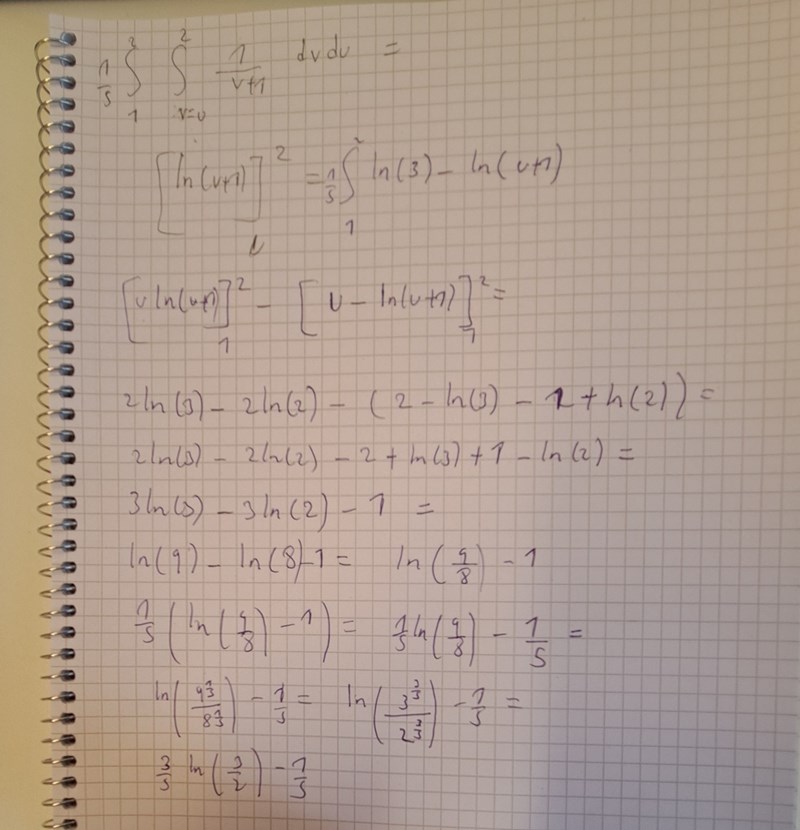 1/5 ∫₁² ∫ᵥ₌ᵤ² 1/(v+1) dvdu =
[ln(v+1)]ᵤ² = 1/5 ∫₁² ln(3) - ln(u+1)
[u ln(u+1)]₁² - [u - ln(u+1)]₁² =
2ln(3) - 2ln(2) - (2 - ln(3) - 1 + ln(2)) =
2ln(3) - 2ln(2) - 2 + ln(3) + 1 - ln(2) =
3ln(3) - 3ln(2) - 1 =
ln(9) - ln(8) - 1 = ln(9/8) - 1
1/5 (ln(9/8) - 1) = 1/5 ln(9/8) - 1/5 =
ln(9^(1/5)/8^(1/5)) - 1/5 = ln(3^(3/5)/2^(3/5)) - 1/5 =
3/5 ln(3/2) - 1/5